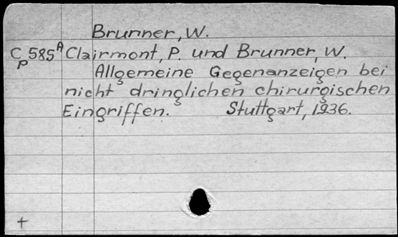 Brunner, W.
Cp 585A Clairmont, P. und Brunner, W.
Allgemeine Gegenanzeigen bei
nicht dringlichen chirurgischen
Eingriffen. Stuttgart, 1936.
+